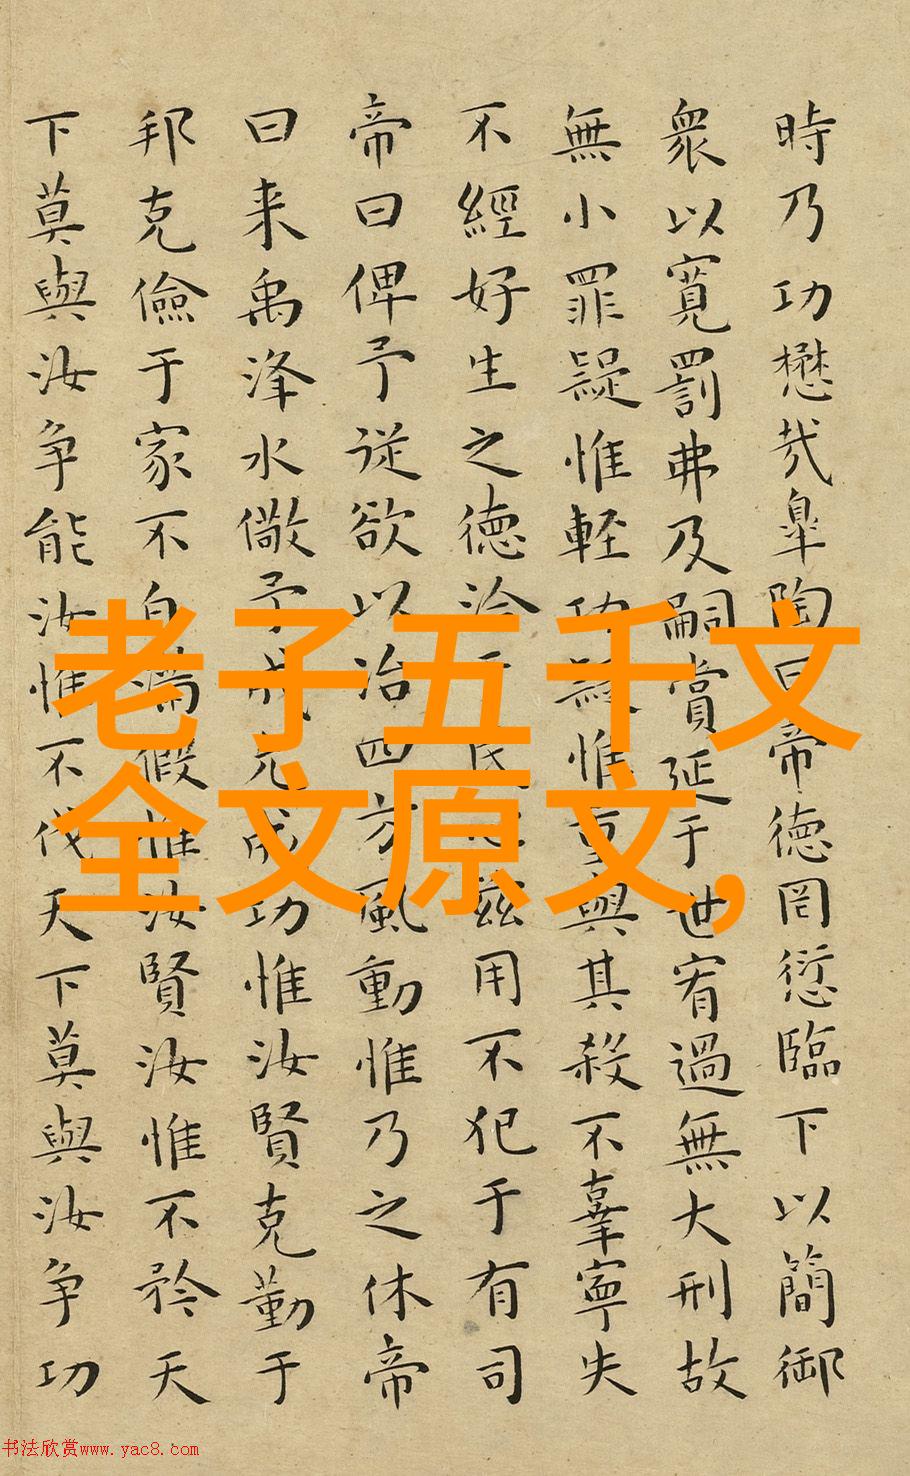 時乃功懋哉皐陶曰帝徳罔愆臨下以簡御
衆以寛罰弗及嗣賞延于世宥過無大刑故
無小罪疑惟輕功疑惟重與其殺不辜寧失
不經好生之徳洽于民心兹用不犯于有司
帝曰俾予從欲以治四方風動惟乃之休帝
曰来禹洚水儆予成允成功惟汝賢克勤于
邦克儉于家不自滿假惟汝賢汝惟不矜天
下莫與汝争能汝惟不伐天下莫與汝争功
老子五千文
全文原文,
书法欣赏www.yac8.com